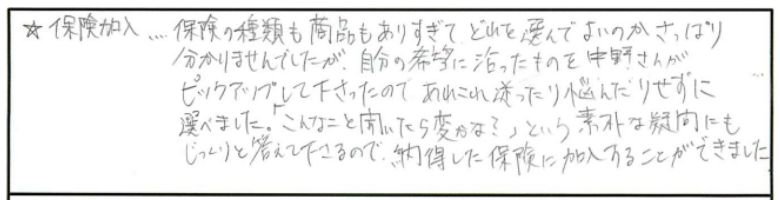 ☆保険加入… 保険の種類も商品もありすぎて、どれを選んでよいのかさっぱり
分かりませんでしたが、自分の希望に沿ったものを中野さんが
ピックアップして下さったので あれこれ迷ったり悩んだりせずに
選べました。「こんなこと聞いたら変かな?」という素朴な疑問にも
じっくりと答えて下さるので、納得した保険に加入することができました